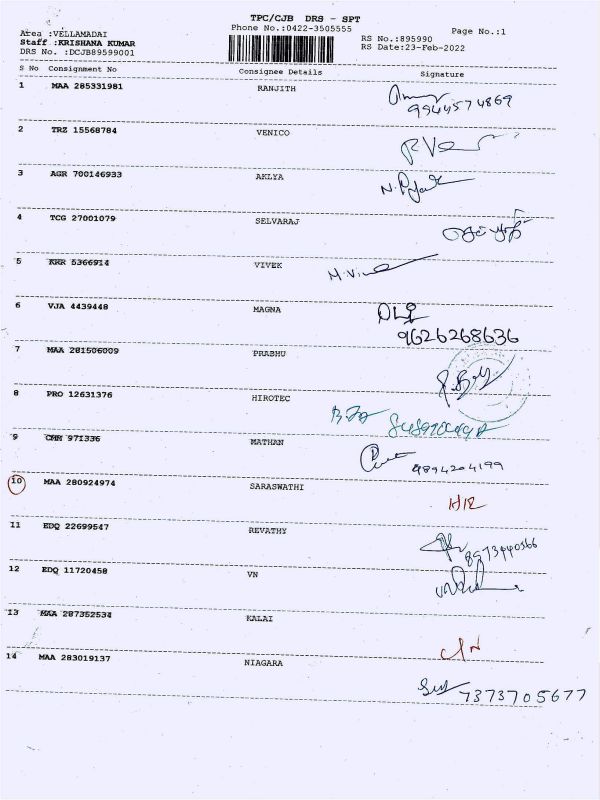 TPC/CJB DRS - SPT
Area :VELLAMADAI
Phone No.:0422-3505555
Page No.:1
Staff :KRISHANA KUMAR
RS No.:895990
DRS No. :DCJB89599001
RS Date:23-Feb-2022
S No Consignment No Consignee Details Signature
1 MAA 285331981 RANJITH
9944574869
2 TRZ 15568784 VENICO
3 AGR 700146933 AKLYA
4 TCG 27001079 SELVARAJ
5 KRR 5366914 VIVEK
6 VJA 4439448 MAGNA
9626268636
7 MAA 281506009 PRABHU
8 PRO 12631376 HIROTEC
9 CMM 971336 MATHAN
9894204199
10 MAA 280924974 SARASWATHI
11 EDQ 22699547 REVATHY
12 EDQ 11720458 VN
13 MAA 287352534 KALAI
14 MAA 283019137 NIAGARA
7373705677